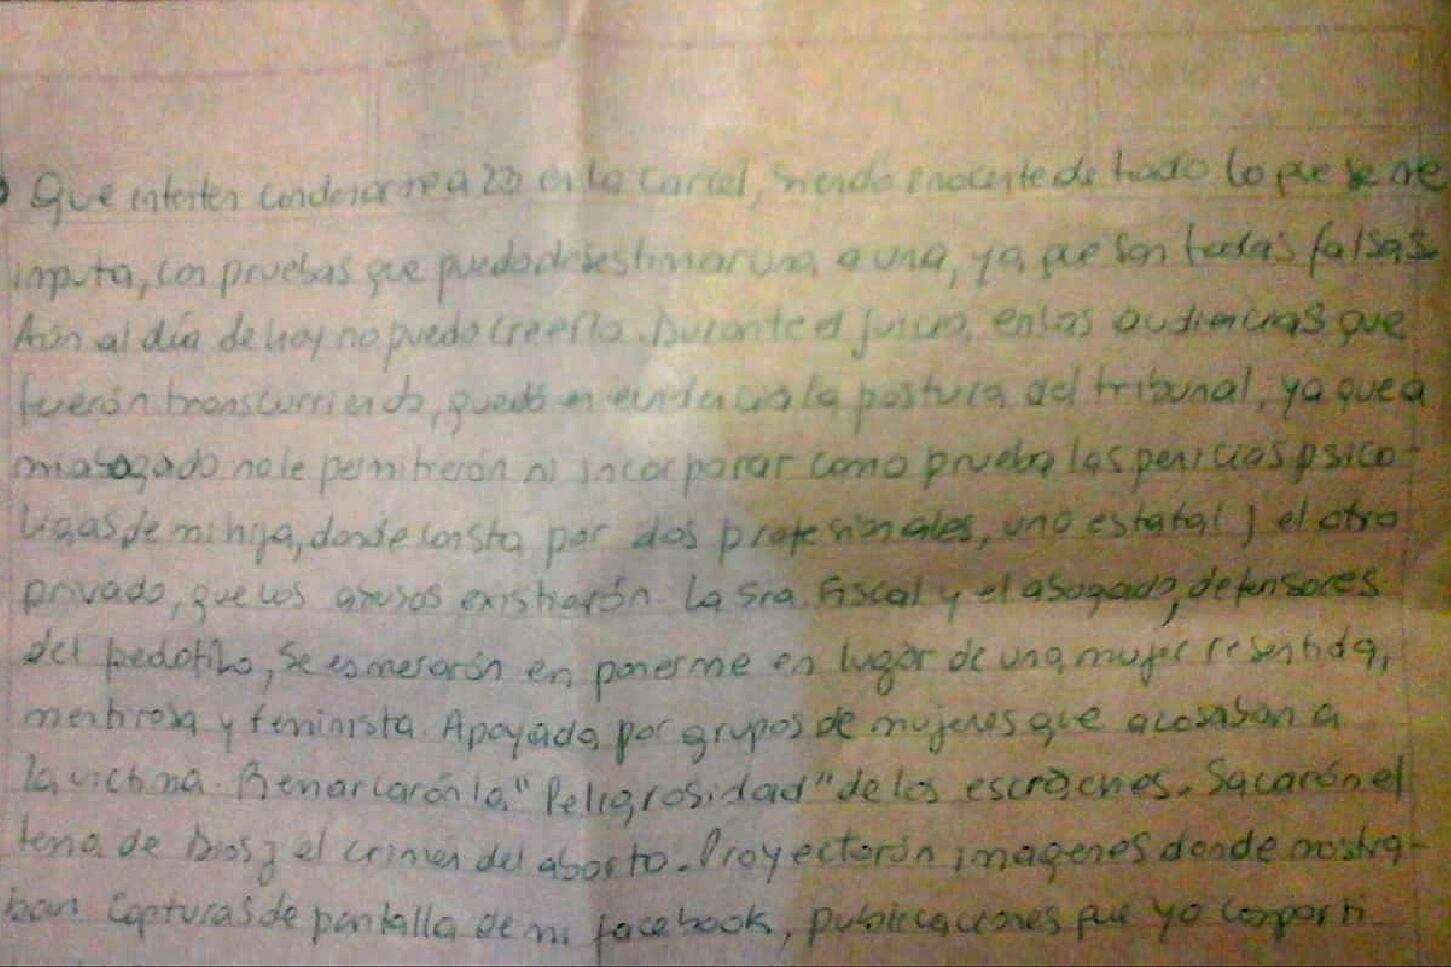 Que intenten condenarme a 20 en la carcel, siendo inocente de todo lo que se me
imputa, con pruebas que puedo desestimar una a una, ya que son todas falsas
Aún al día de hoy no puedo creerlo. Durante el juicio, en las audiencias que
fuerón transcurriendo, quedó en evidencia la postura del tribunal, ya que a
mi abogado no le permitierón ni incorporar como prueba las pericias psico-
ligas de mi hija, donde consta por dos profesionales, uno estatal y el otro
privado, que los abusos existierón. La Sra. Fiscal y el abogado, defensores
del pedofilo, se esmerarón en ponerme en lugar de una mujer resentida,
mentirosa y feminista. Apoyada por grupos de mujeres que acosaban a
la victima. Remarcarón la "Peligrosidad" de los escraches. Sacarón el
tema de Dios y el crimen del aborto. Proyectarón imagenes donde mostra-
ban Capturas de pantalla de mi facebook, publicaciones que yo comparti